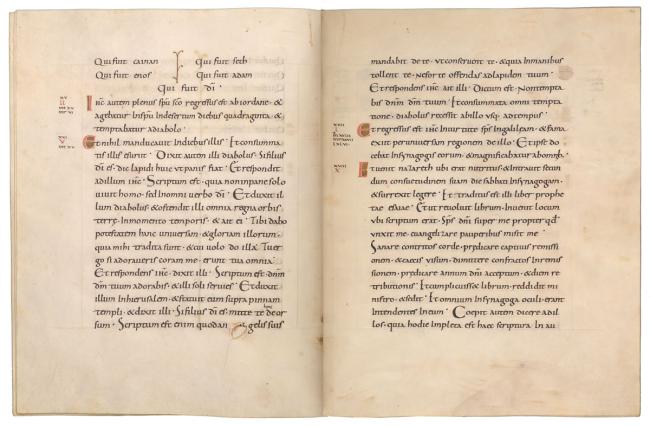 Qui fuit cainan Qui fuit seth
Qui fuit enos Qui fuit adam
Qui fuit dī
Ihc autem plenus spu sco regressus est ab iordane · &
agebatur in spu in desertum diebus quadraginta · &
temptabatur a diabolo ·
Et nihil manducavit in diebus illis · Et consumma
tis illis esuriit · Dixit autem illi diabolus · Si filius
dī es · dic lapidi huic ut panis fiat · Et respondit
ad illum ihc · Scriptum est · quia non in pane solo
vivit homo · sed in omni verbo dī · Et duxit il
lum diabolus & ostendit illi omnia regna orbis
terrę · In momento temporis · & ait ei · Tibi dabo
potestatem hanc universam · & gloriam illorum ·
quia mihi tradita sunt · & cui volo do illa · Tu er
go si adoraveris coram me · erunt tua omnia ·
Et respondens ihc · dixit illi · Scriptum est · dnm
dm tuum adorabis · & illi soli servies · Et duxit
illum in hierusalem · & statuit eum supra pinnam
templi · & dixit illi · Si filius dī es · mitte te hinc deor
sum · Scriptum est enim quod angelis suis
mandabit de te · ut conservent te · & quia in manibus
tollent te · ne forte offendas ad lapidem tuum ·
Et respondens ihc ait illi · Dictum est · Non tempta
bis dnm dm tuum · Et consummata omni tempta
tione · diabolus recessit ab illo usq · ad tempus ·
Et regressus est ihc in virtute sps in galileam · & fama
exiit per universam regionem de illo · Et ipse do
cebat in synagogis eorum · & magnificabatur ab omnib ·
Et venit nazareth ubi erat nutritus · & intravit secun
dum consuetudinem suam die sabbati in synagogam ·
& surrexit legere · Et traditus est illi liber prophe
tae esaiae · Et ut revolvit librum · invenit locum
ubi scriptum erat · Sps dni super me propter qd
unxit me · evangelizare pauperibus misit me ·
Sanare contritos corde · predicare captivis remissi
onem · & caecis visum · dimittere confractos in remis
sionem · predicare annum dni acceptum · & diem re
tributionis · Et cum plicuisset librum · reddidit mi
nistro · & sedit · Et omnium in synagoga oculi · erant
intendentes in eum · Coepit autem dicere ad il
los · quia hodie impleta est haec scriptura in au